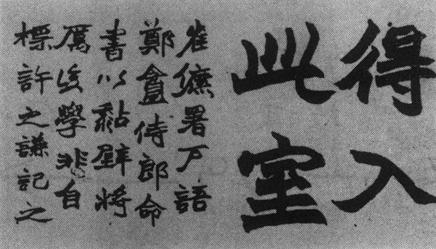 得入
此室
崔儦署戶語
鄭盦侍郎命
書以黏壁將
厲後學非自
標許之謙記之